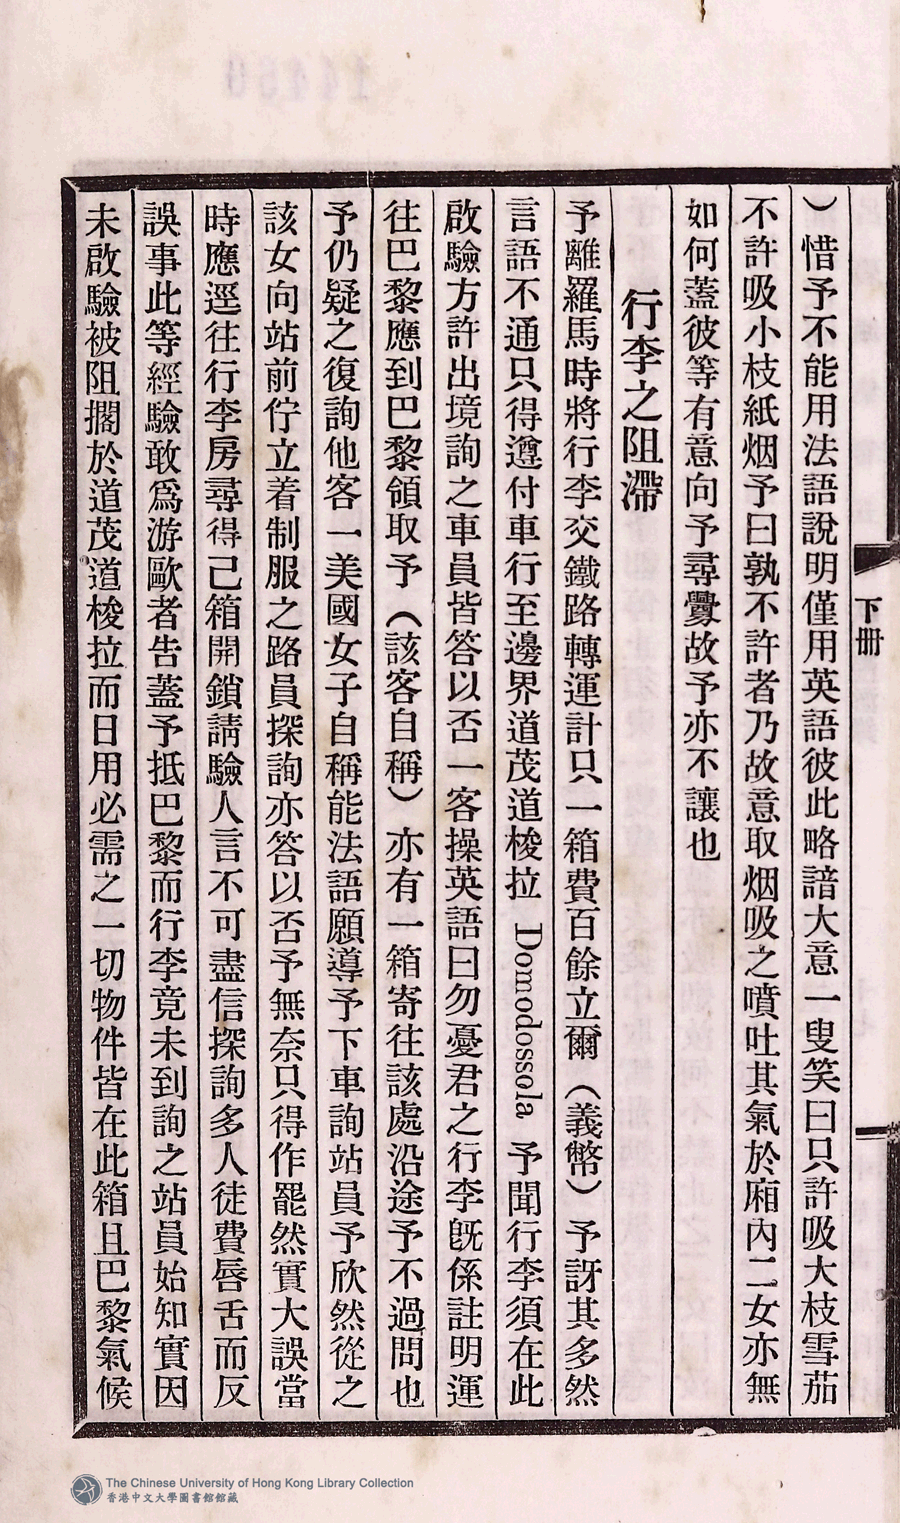 下册
）惜予不能用法語說明僅用英語彼此略諳大意一叟笑曰只許吸大枝雪茄
不許吸小枝紙烟予曰孰不許者乃故意取烟吸之噴吐其氣於廂內二女亦無
如何蓋彼等有意向予尋釁故予亦不讓也
行李之阻滯
予離羅馬時將行李交鐵路轉運計只一箱費百餘立爾（義幣）予訝其多然
言語不通只得遵付車行至邊界道茂道梭拉 Domodossola 予聞行李須在此
啟驗方許出境詢之車員皆答以否一客操英語曰勿憂君之行李旣係註明運
往巴黎應到巴黎領取予（該客自稱）亦有一箱寄往該處沿途予不過問也
予仍疑之復詢他客一美國女子自稱能法語願導予下車詢站員予欣然從之
該女向站前佇立着制服之路員探詢亦答以否予無奈只得作罷然實大誤當
時應逕往行李房尋得己箱開鎖請驗人言不可盡信探詢多人徒費唇舌而反
誤事此等經驗敢爲游歐者告蓋予抵巴黎而行李竟未到詢之站員始知實因
未啟驗被阻擱於道茂道梭拉而日用必需之一切物件皆在此箱且巴黎氣候
The Chinese University of Hong Kong Library Collection
香港中文大學圖書館館藏